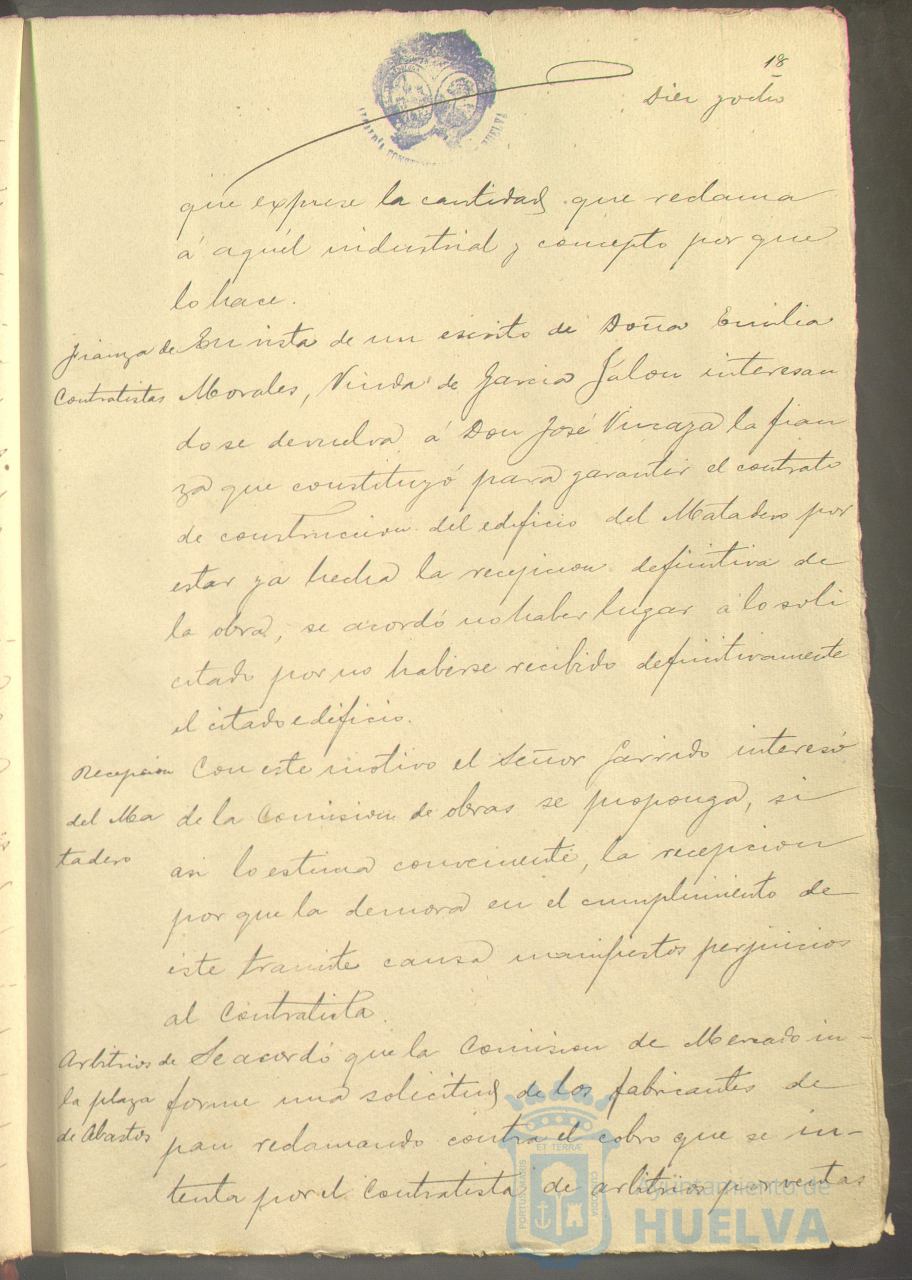 18
Diez y ocho
que exprese la cantidad que reclama
á aquél industrial y concepto por que
lo hace.
Fianza de
Contratistas
En vista de un escrito de Doña Emilia
Morales, Viuda de Garcia Jalon interesan
do se devuelva á Don José Vinaza la fian
za que constituyó para garantir el contrato
de construccion del edificio del Matadero por
estar ya hecha la recepcion definitiva de
la obra, se acordó no haber lugar á lo soli
citado por no haberse recibido definitivamente
el citado edificio.
Recepcion
del Ma
tadero
Con este motivo el Señor Garrido interesó
de la Comision de obras se proponga, si
asi lo estima conveniente, la recepcion
por que la demora en el cumplimiento de
este tramite causa manifiestos perjuicios
al Contratista.
Arbitrios de
la plaza
de Abastos
Se acordó que la Comision de Mercado in-
forme una solicitud de los fabricantes de
pan reclamando contra el cobro que se in-
tenta por el Contratista de arbitrios por ventas
PORTUS MARIS
ET TERRÆ
CUSTODIA
Ayuntamiento de
HUELVA